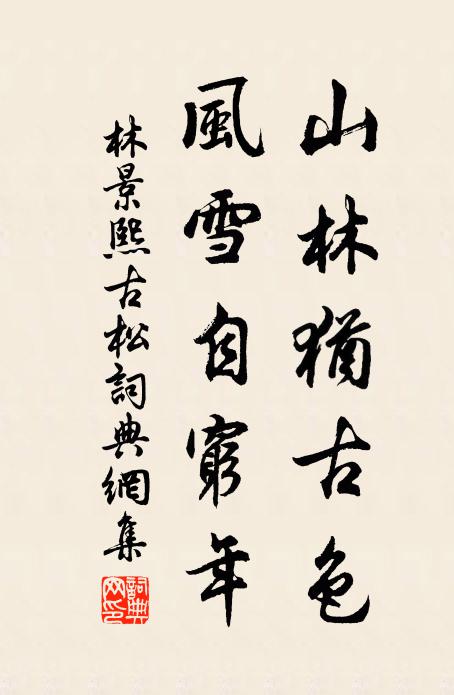 山林猶古色
風雪自窮年
林景熙古松詞典網集
詞典網印